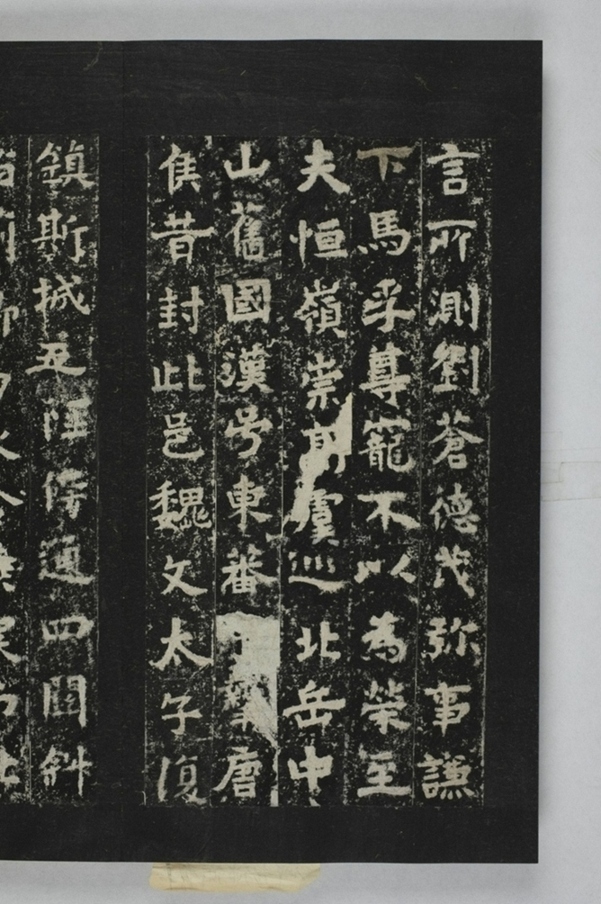 言所測劉蒼德茂弥事謙
下馬孚尊寵不以為榮至
夫恒嶺崇虞巡北岳中
山舊國漢号東蕃唐
侯昔封此邑魏文太子復
鎮斯城五陘傍通四開斜